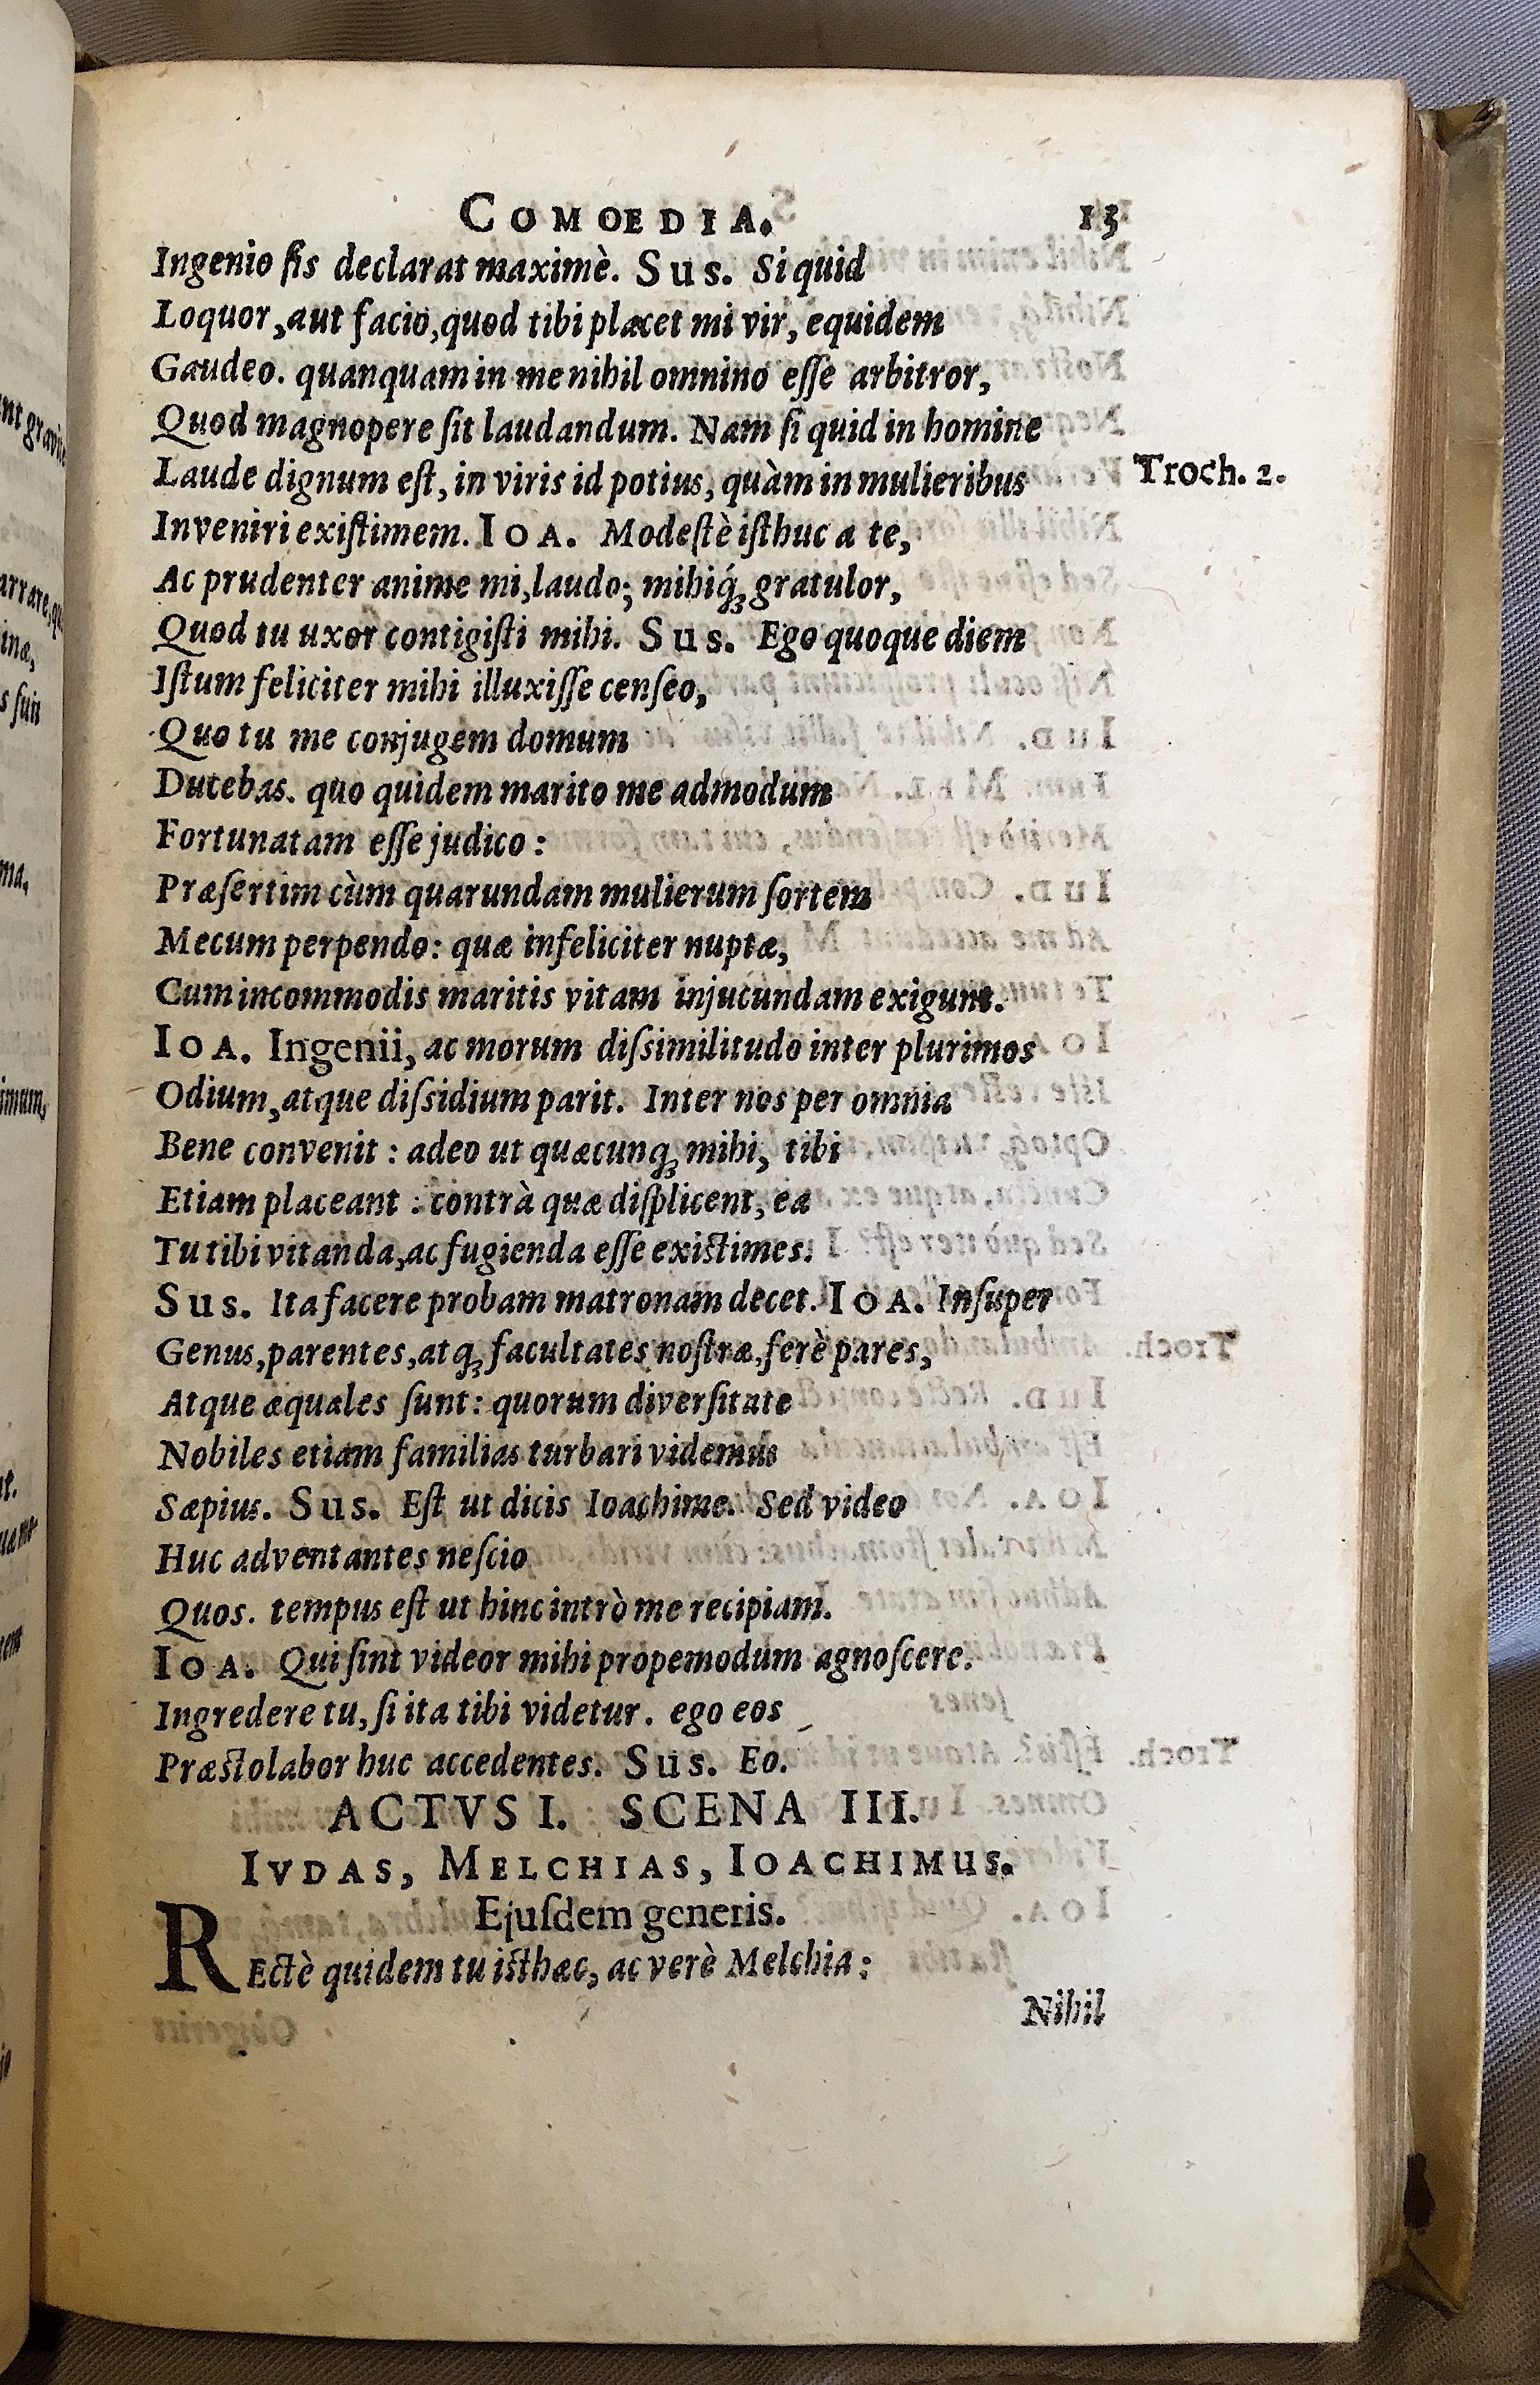 COMOEDIA. 13
Ingenio ſis declarat maximè. Sus. Si quid
Loquor, aut facio, quod tibi placet mi vir, equidem
Gaudeo. quanquam in me nihil omnino eſſe arbitror,
Quod magnopere ſit laudandum. Nam ſi quid in homine
Laude dignum eſt, in viris id potius, quàm in mulieribus Troch. 2.
Inveniri exiſtimem. IOA. Modeſtè iſthuc a te,
Ac prudenter anime mi, laudo; mihiq́ꝫ gratulor,
Quod tu uxor contigiſti mihi. Sus. Ego quoque diem
Iſtum feliciter mihi illuxiſſe cenſeo,
Quo tu me conjugem domum
Ducebas. quo quidem marito me admodum
Fortunatam eſſe judico:
Præſertim cùm quarundam mulierum ſortem
Mecum perpendo: quæ infeliciter nuptæ,
Cum incommodis maritis vitam injucundam exigunt.
IOA. Ingenii, ac morum diſsimilitudo inter plurimos
Odium, atque diſsidium parit. Inter nos per omnia
Bene convenit: adeo ut quæcunqꝫ mihi, tibi
Etiam placeant: contrà quæ diſplicent, ea
Tu tibi vitanda, ac fugienda eſſe exiſtimes.
Sus. Ita facere probam matronam decet. IOA. Inſuper
Genus, parentes, atqꝫ facultates noſtræ, ferè pares,
Atque æquales ſunt: quorum diverſitate
Nobiles etiam familias turbari videmus
Sæpius. Sus. Eſt ut dicis Ioachime. Sed video
Huc adventantes neſcio
Quos. tempus eſt ut hinc intrò me recipiam.
IOA. Qui ſint videor mihi propemodum agnoſcere.
Ingredere tu, ſi ita tibi videtur. ego eos
Præſtolabor huc accedentes. Sus. Eo.
ACTVS I. SCENA III.
IVDAS, MELCHIAS, IOACHIMUS.
Ejuſdem generis.
REctè quidem tu iſthæc, ac verè Melchia:
Nihil